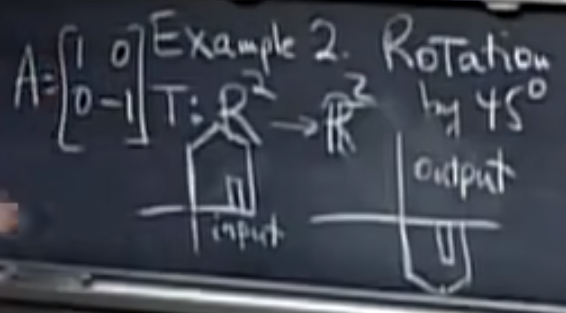 A=[1 0
0 -1]
Example 2. Rotation
by 45°
T: R² → R²
input
output